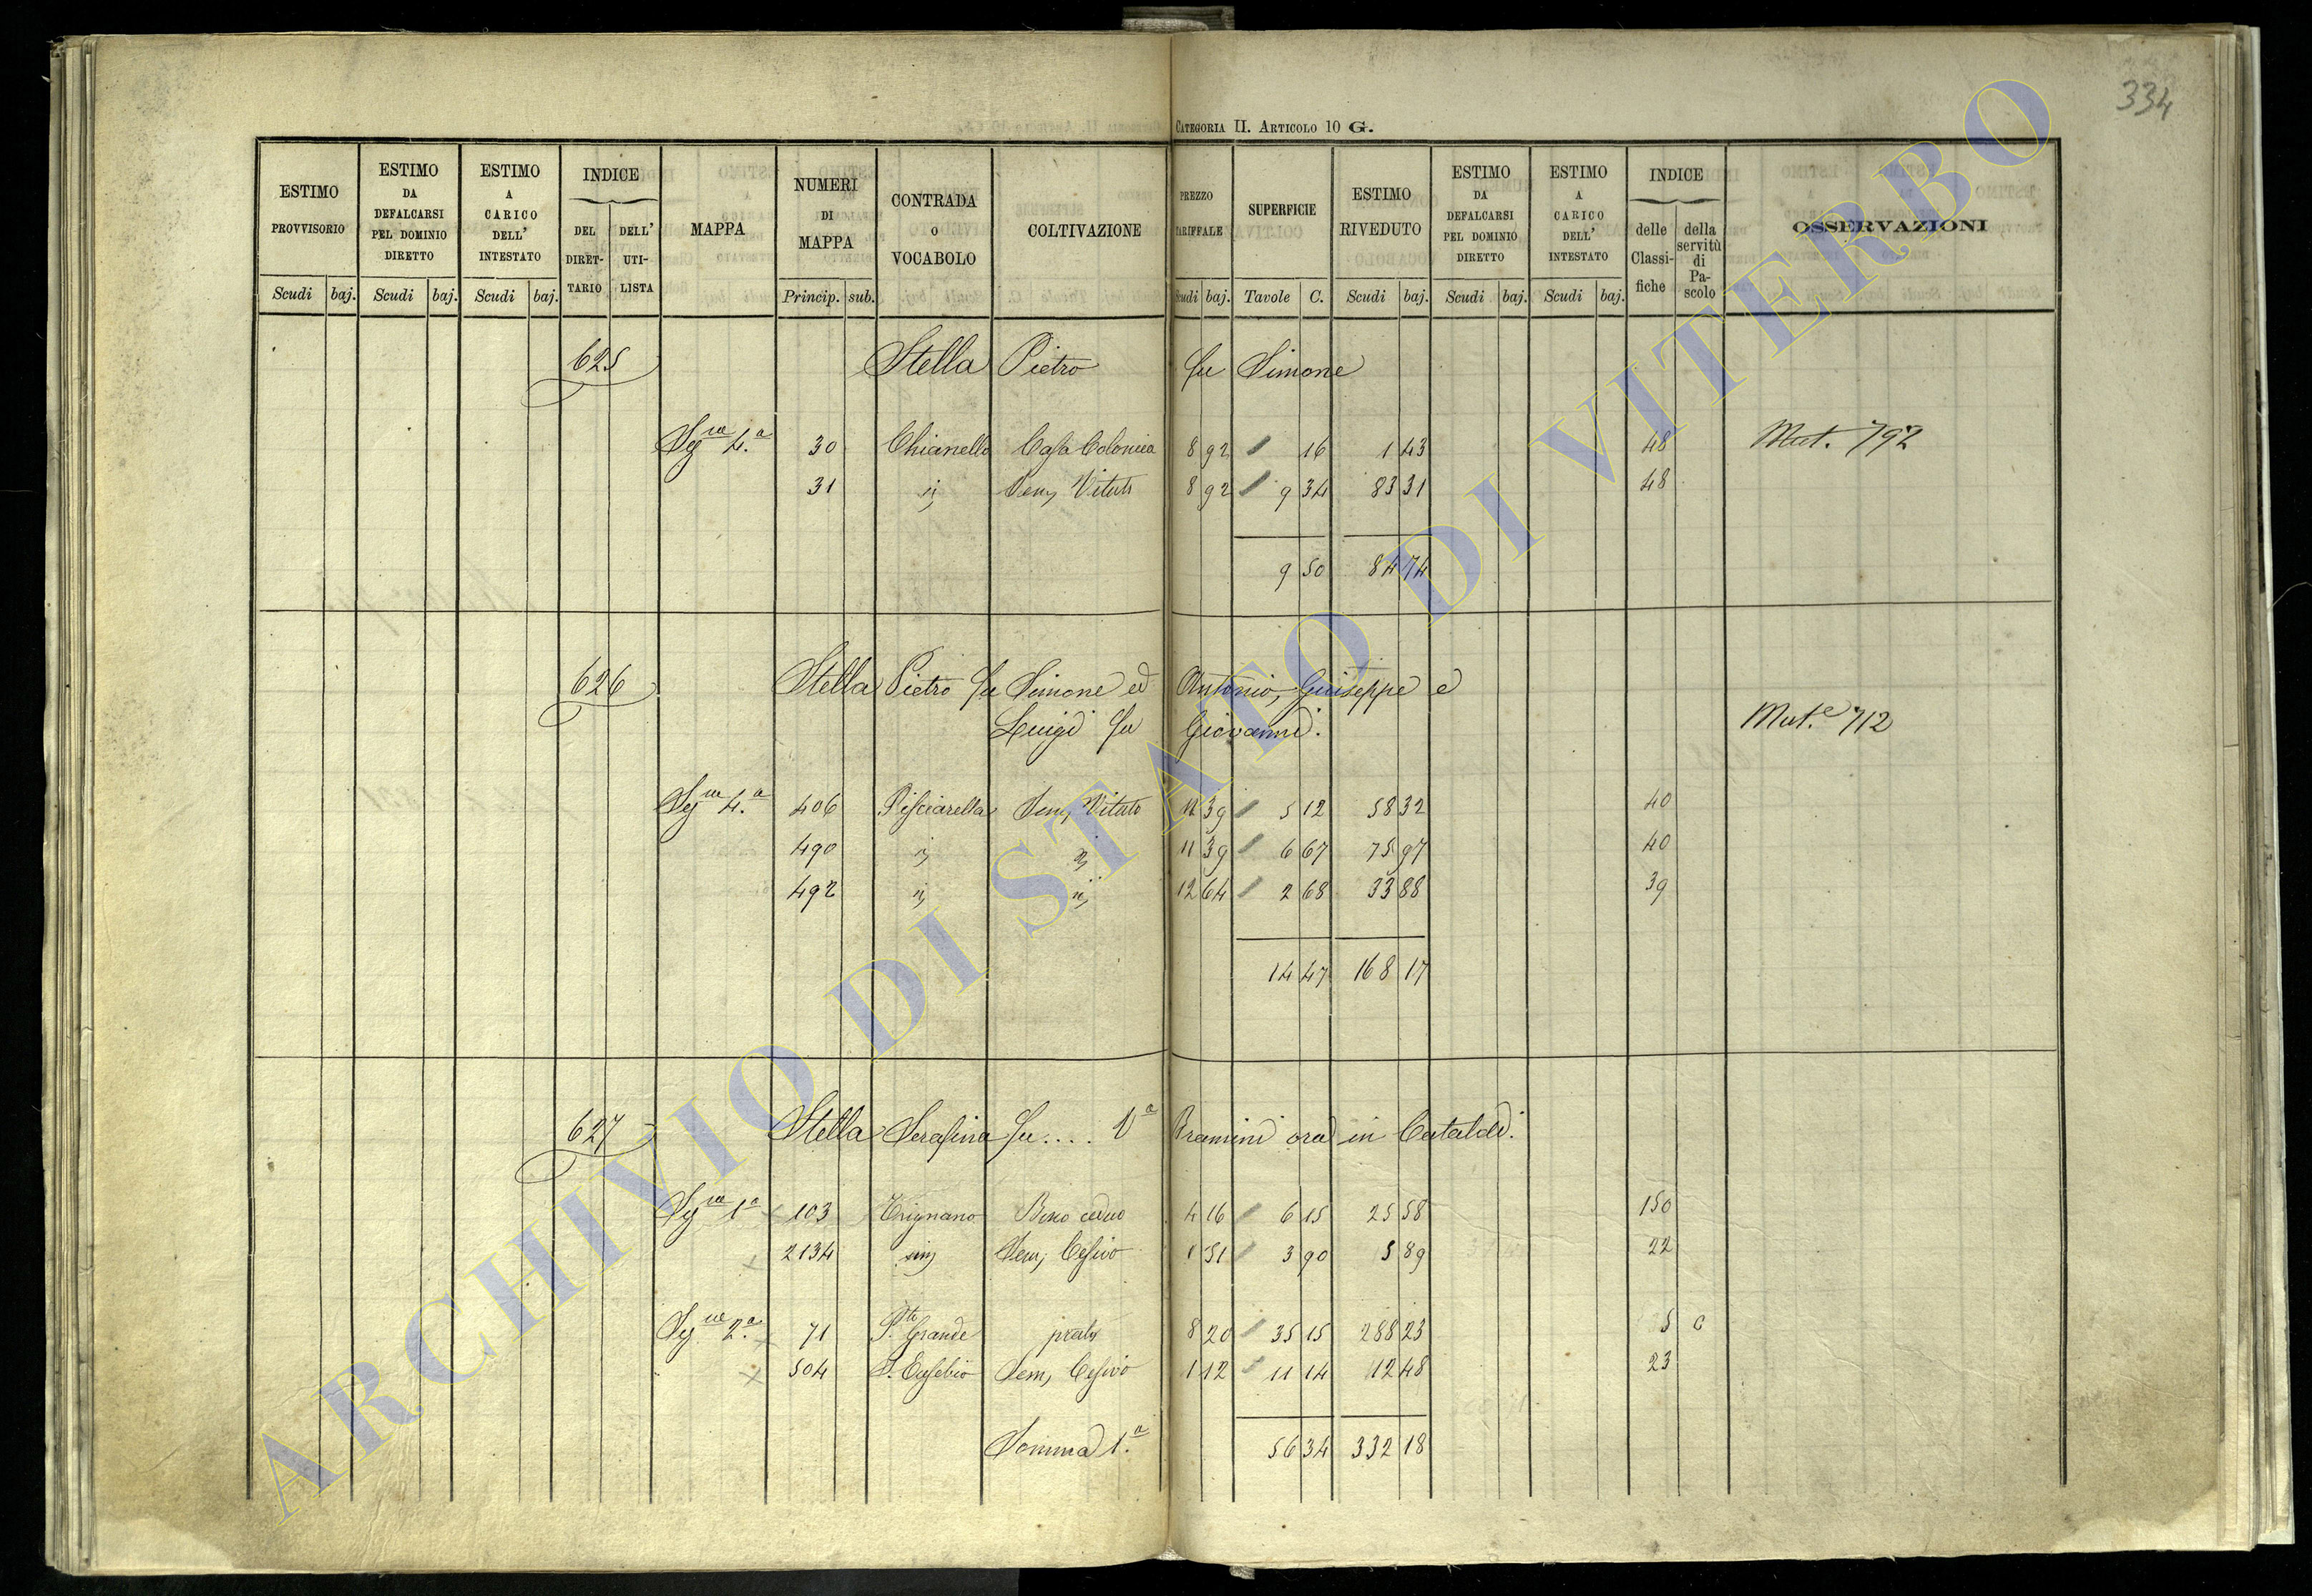 334
CATEGORIA II. ARTICOLO 10 G.
ESTIMO PROVVISORIO Scudi baj.
ESTIMO DA DEFALCARSI PEL DOMINIO DIRETTO Scudi baj.
ESTIMO A CARICO DELL' INTESTATO Scudi baj.
INDICE DEL DIRET-TARIO DELL' UTI-LISTA
MAPPA
NUMERI DI MAPPA Princip. sub.
CONTRADA O VOCABOLO
COLTIVAZIONE
PREZZO TARIFFALE Scudi baj.
SUPERFICIE Tavole C.
ESTIMO RIVEDUTO Scudi baj.
ESTIMO DA DEFALCARSI PEL DOMINIO DIRETTO Scudi baj.
ESTIMO A CARICO DELL' INTESTATO Scudi baj.
INDICE delle Classi-fiche della servitù di Pa-scolo
OSSERVAZIONI
625 Stella Pietro fu Simone
Sgne 4.a 30 Chianello Casa Colonica 8 92 16 1 43 48 Mut. 792
31 Sem, Vitato 8 92 9 34 83 31 48
9 50 84 74
626 Stella Pietro fu Simone ed Antonio, Giuseppe e
Luigi fu Giovanni. Mut.e 712
Sgne 4.a 406 Pisciarella Sem, Vitato 11 39 5 12 58 32 40
490 11 39 6 67 75 97 40
492 12 64 2 68 33 88 39
14 47 168 17
627 Stella Serafina fu .... Va Bramini ora in Cataldi.
Sgne 1a 103 Trignano Bosco ceduo 4 16 6 15 25 58 150
2134 Sem, Cesivo 1 51 3 90 5 89 22
Sgne 2.a 71 P.te Grande prato 8 20 35 15 288 23 5 c
504 S. Eusebio Sem, Cesivo 1 12 11 14 12 48 23
Somma 1.a 56 34 332 18
ARCHIVIO DI STATO DI VITERBO